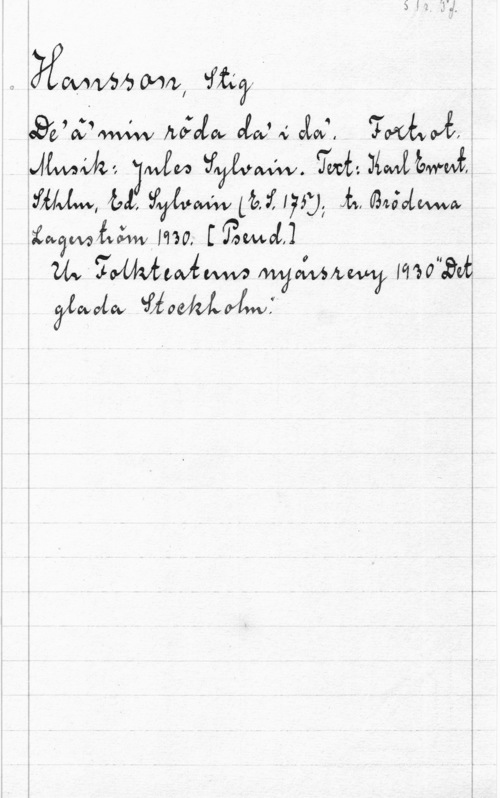 Hansson, Stig
De' ä' min röda da' i da'. Foxtrot.
Musik: Jules Sylvain. Text: Karl Ewert.
Sthlm, Ed. Sylvain (E.S. 175); tr. Bröderna
Lagerström 1930. [Pseud.]
Ur Folkteaterns nyårsrevy 1930 "Det
glada Stockholm".